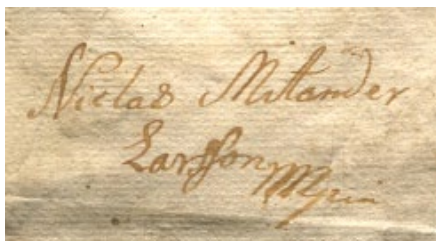 Niclas Milander
Larsson